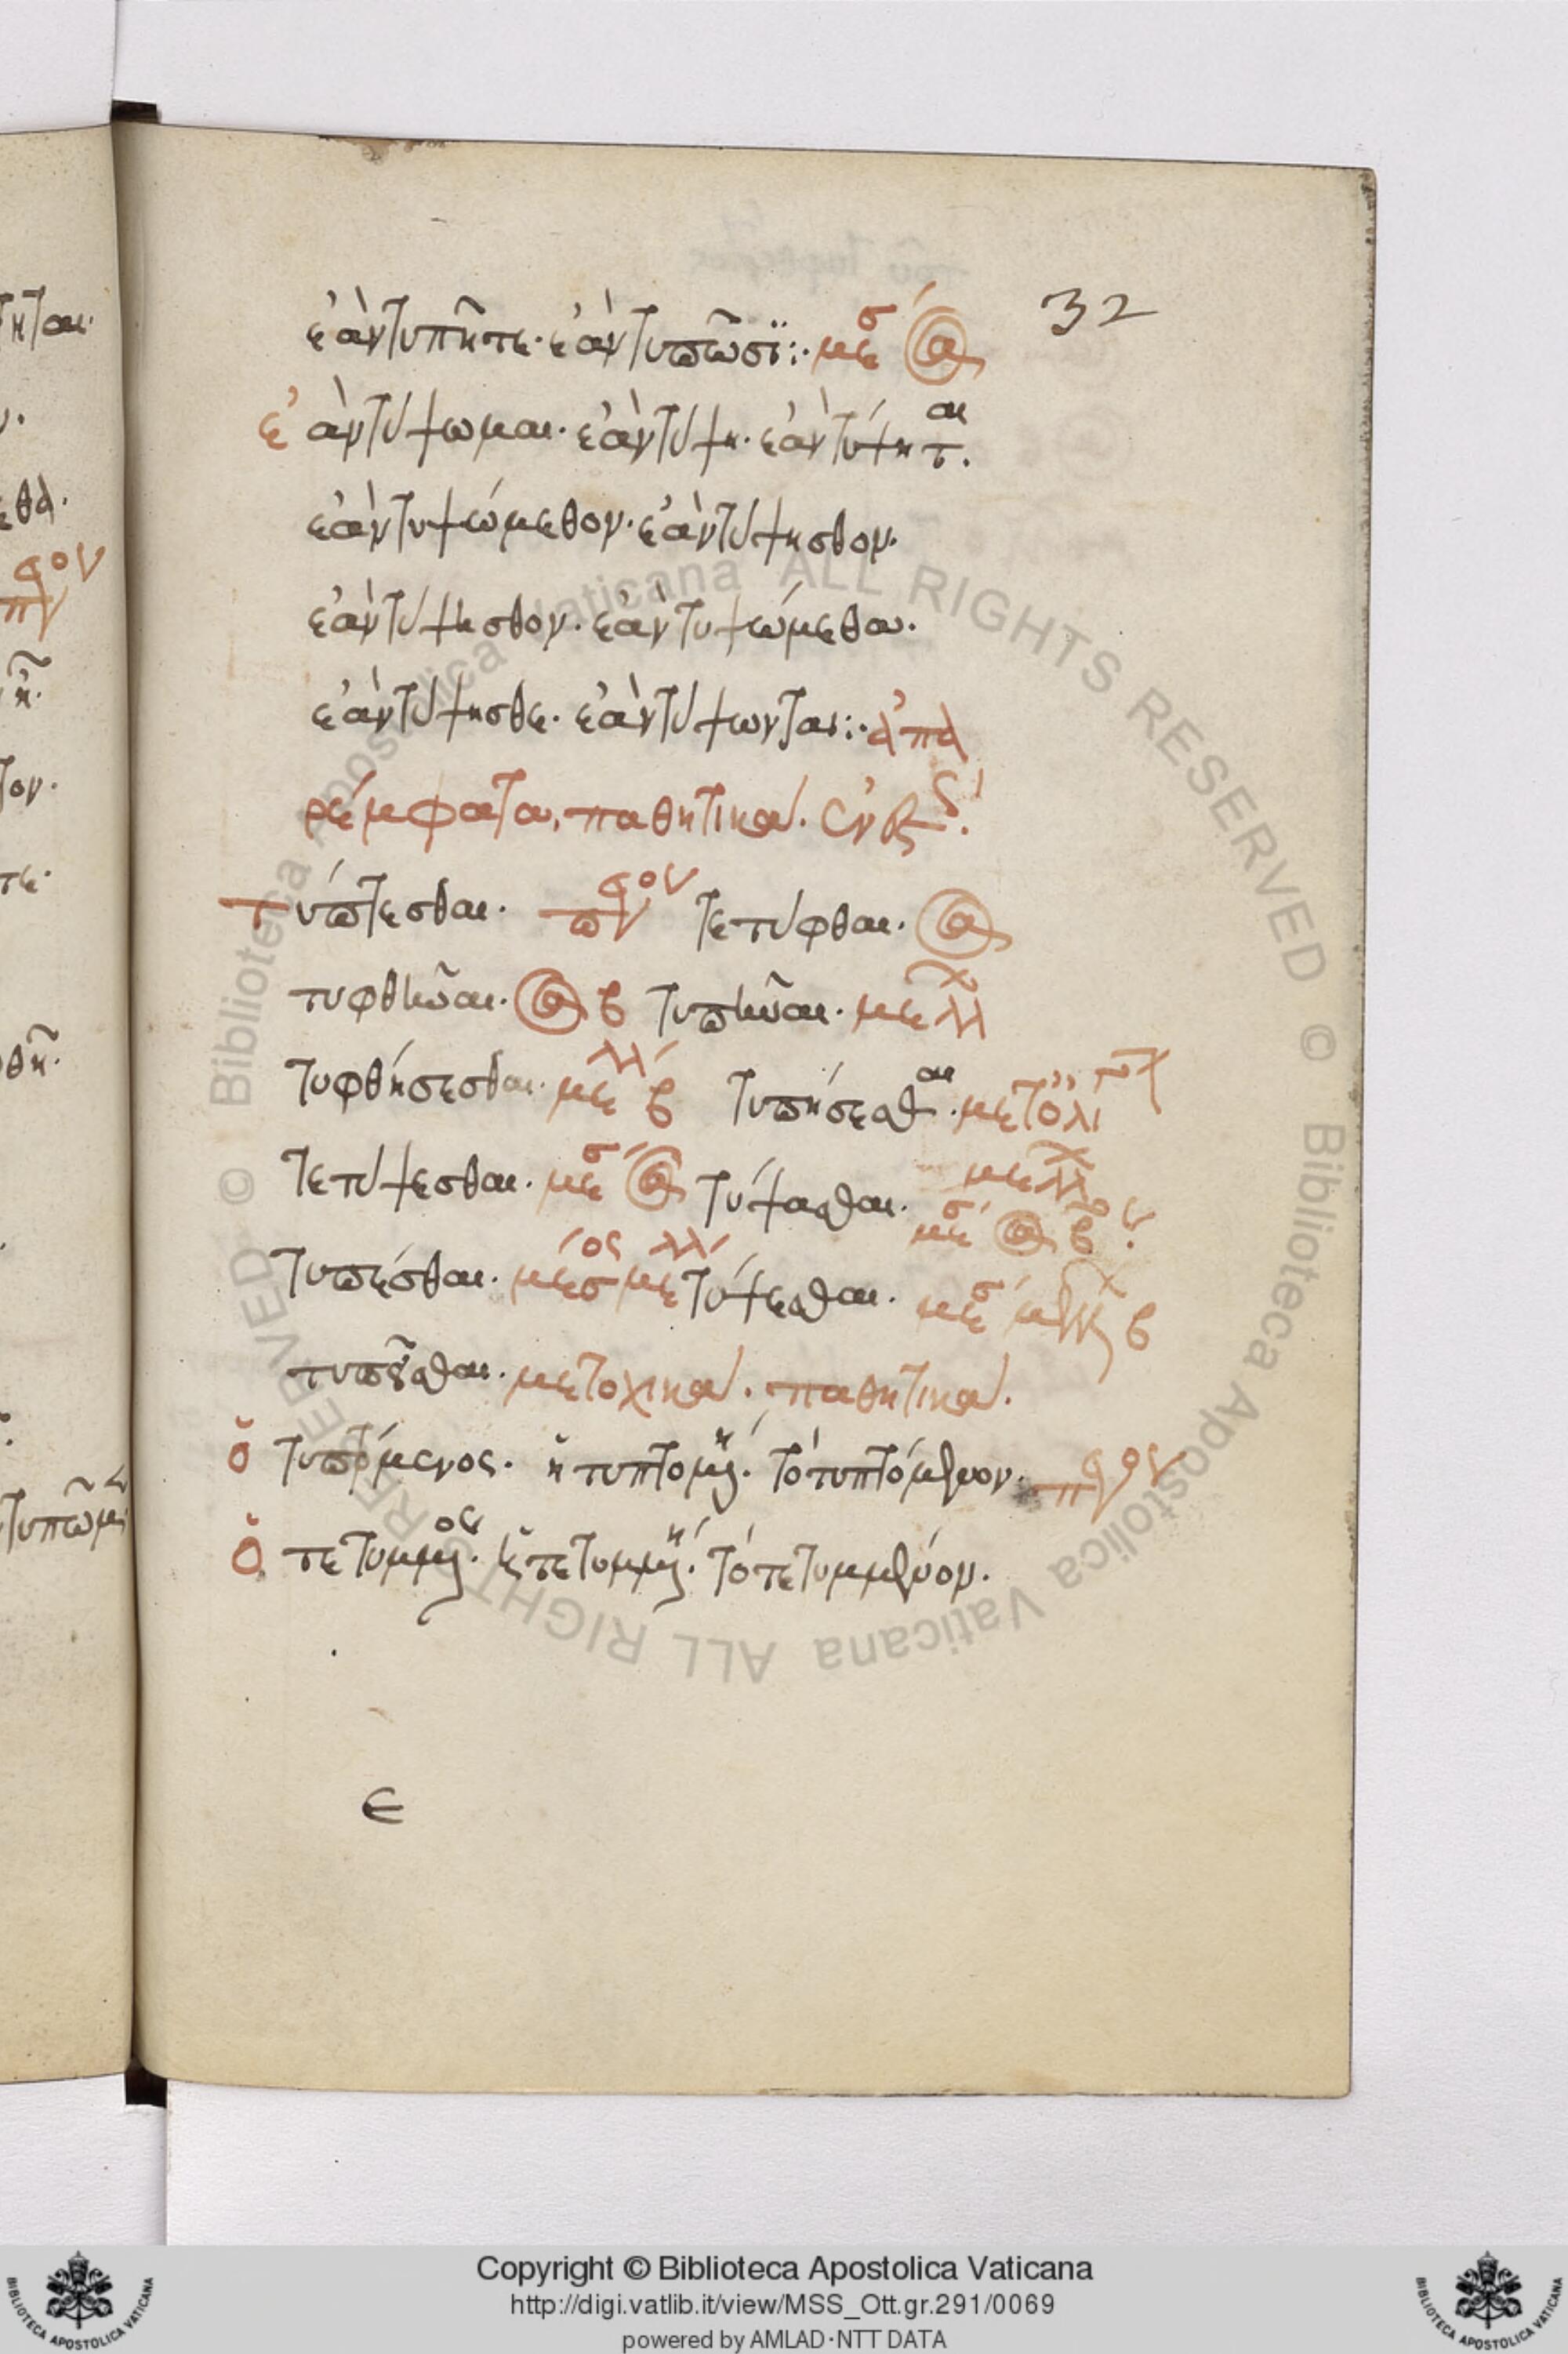 32
ἐὰν τυπῆτε· ἐὰν τυπῶσϊ:· μεσ α
ἐὰν τύψωμαι· ἐὰν τύψη· ἐὰν τύψηται.
ἐὰν τυψώμεθον· ἐὰν τύψησθον·
ἐὰν τύψησθον· ἐὰν τυψώμεθα·
ἐὰν τύψησθε· ἐὰν τύψωνται:· ἀπα
ρέμφατα, παθητικά.
τύπτεσθαι· τετύφθαι· α
τυφθῆναι· α β τυπῆναι· μελλ
τυφθήσεσθαι· με λλ β τυπήσεσθαι· μετ ὀλί
τετύψεσθαι· μεσ α τύψασθαι· μελλ
μεσ α β
τυπέσθαι· μέσος μελλ τύψεσθαι· μεσ μελλ β
τυπεῖσθαι· μετοχικά. παθητικά.
ὁ τυπτόμενος· ἡ τυπτομένη· τὸ τυπτόμενον·
ὁ τετυμμένος· ἡ τετυμμένη· τὸ τετυμμένον.
ϵ
Copyright © Biblioteca Apostolica Vaticana
http://digi.vatlib.it/view/MSS_Ott.gr.291/0069
powered by AMLAD·NTT DATA
© Biblioteca Apostolica Vaticana ALL RIGHTS RESERVED © Biblioteca Apostolica Vaticana ALL RIGHTS RESERVED
BIBLIOTECA APOSTOLICA VATICANA
BIBLIOTECA APOSTOLICA VATICANA